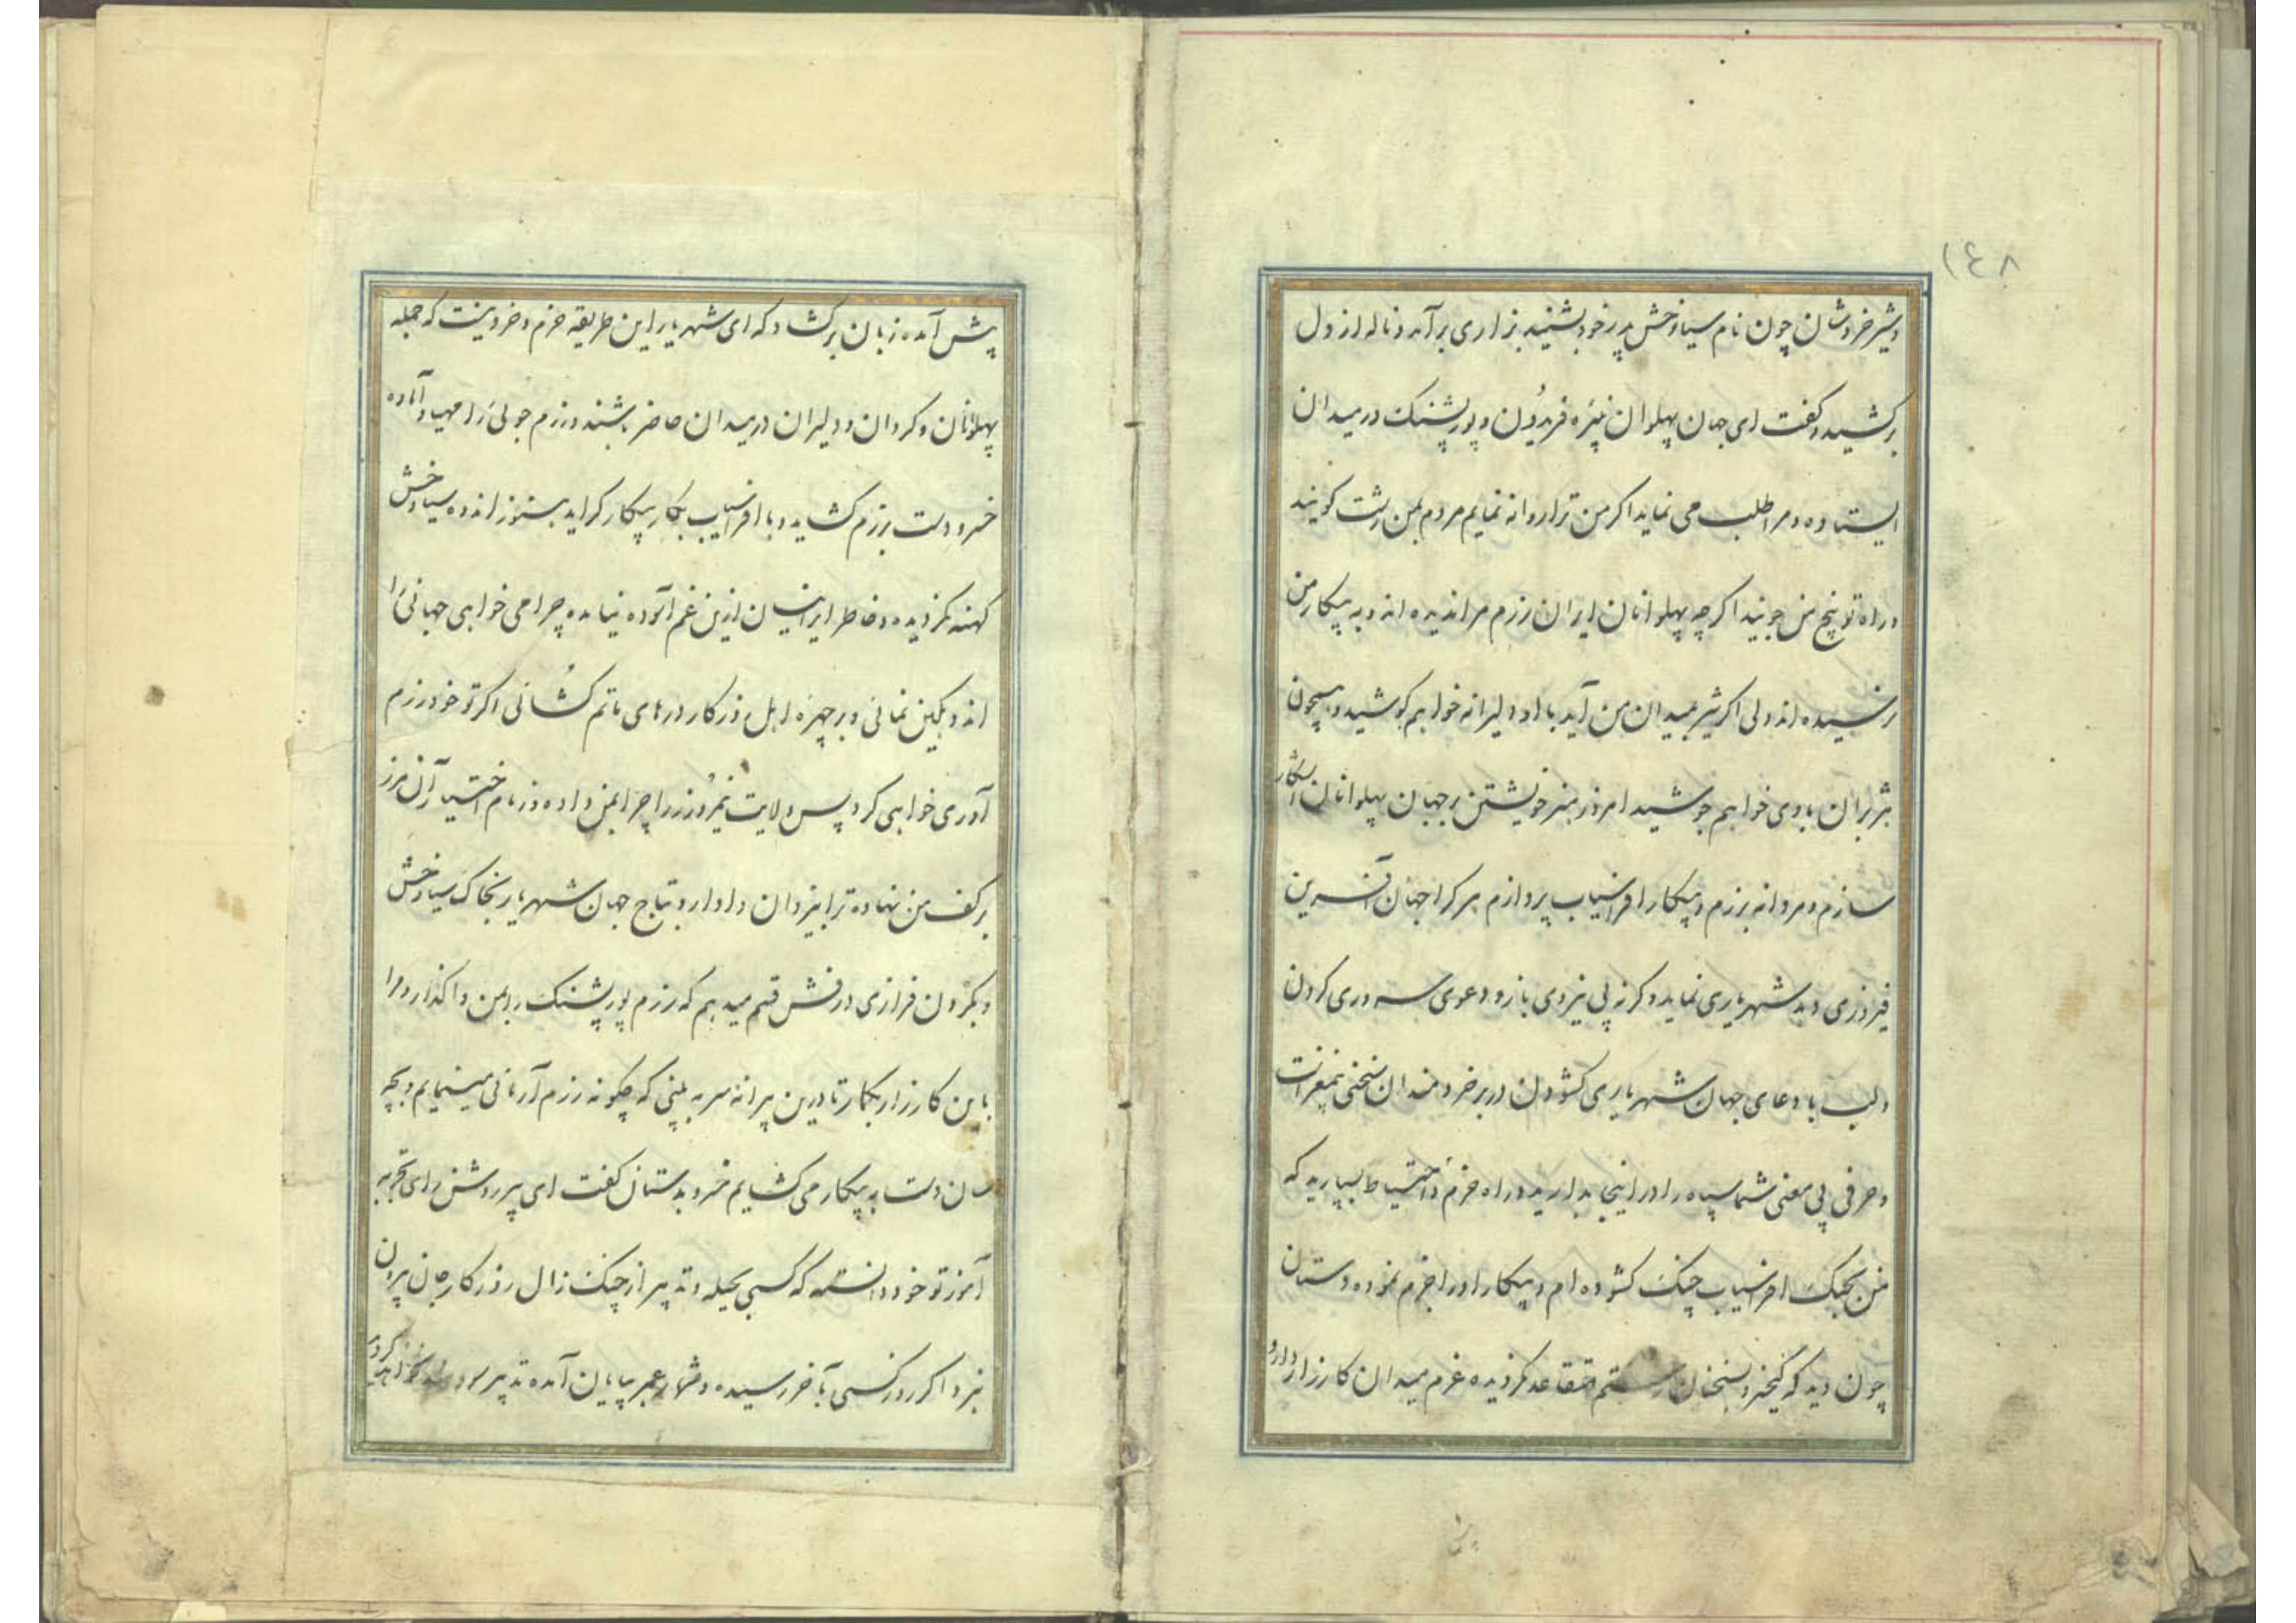 ١٤٨
و شیر خروشان چون نام سیاوخش پدر خود بشنید بزاری برآمد و ناله از دل
برکشید و کفت ای جهان پهلوان نبیره فریدون و پور پشنک در میدان
ایستاده و مرا طلب می نماید اکر من ترا روانه نمایم مردم بمن زشت کویند
و راه توبیخ من جویند اکرچه پهلوانان ایران رزم مرا ندیده اند و به پیکار من
نرسیده اند ولی اکر شیر بمیدان من آید با او دلیرانه خواهم کوشید و همچون
هژبران با وی خواهم جوشید امروز هنر خویشتن بر جهان پهلوانان آشکار
سازم و مردانه برزم و پیکار افراسیاب پردازم هر کرا جهان آفرین
فیروزی دهد شهریاری نماید و کرنه بی نیروی بازو دعوی سروری کردن
و لب با دعای جهان شهریاری کشودن در بر خردمندان سخنی بیمغز است
و حرفی بی معنی شما سپاه را در اینجا بدارید و راه حزم و احتیاط بسپارید که
من بجنک افراسیاب چنک کشوده ام و پیکار او را جزم نموده دستان
چون دید که کیخسرو بسخنان رستم متقاعد نکردیده عزم میدان کارزار دارد
پیش آمده زبان برکشاد که ای شهریار این طریقه حزم و خرد نیست که جمله
پهلوانان و کردان و دلیران در میدان حاضر باشند و رزم جوئی را مهیا و آماده
خسرو دست برزم کشاید و با افراسیاب بکار پیکار کراید هنوز اندوه سیاوخش
کهنه نکردیده و خاطر ایرانیان ازین غم آسوده نیامده چرا می خواهی جهانی را
اندوهکین نمائی و بر چهره اهل روزکار درهای ماتم کشائی اکر تو خود رزم
آوری خواهی کرد پس ولایت نیمروز را چرا بمن داده و زمام اختیار آن مرز
بر کف من نهاده ترا بیزدان دادار و بتاج جهان شهریار بخاک سیاوخش
و بکردون فرازی درفش قسم میدهم که رزم پور پشنک را بمن واکذار و مرا
باین کارزار بکمار تا درین پیرانه سر به بینی که چکونه رزم آزمائی مینمایم و بچه
سان دست به پیکار می کشایم خسرو بدستان کفت ای پیر روشن رای تجربه
آموز تو خود دانسته که کسی بحیله و تدبیر از چنک زال روزکار جان بیرون
نبرد اکر روز کسی بآخر رسیده و شمار عمر بپایان آمده تدبیر سود نخواهد کرد